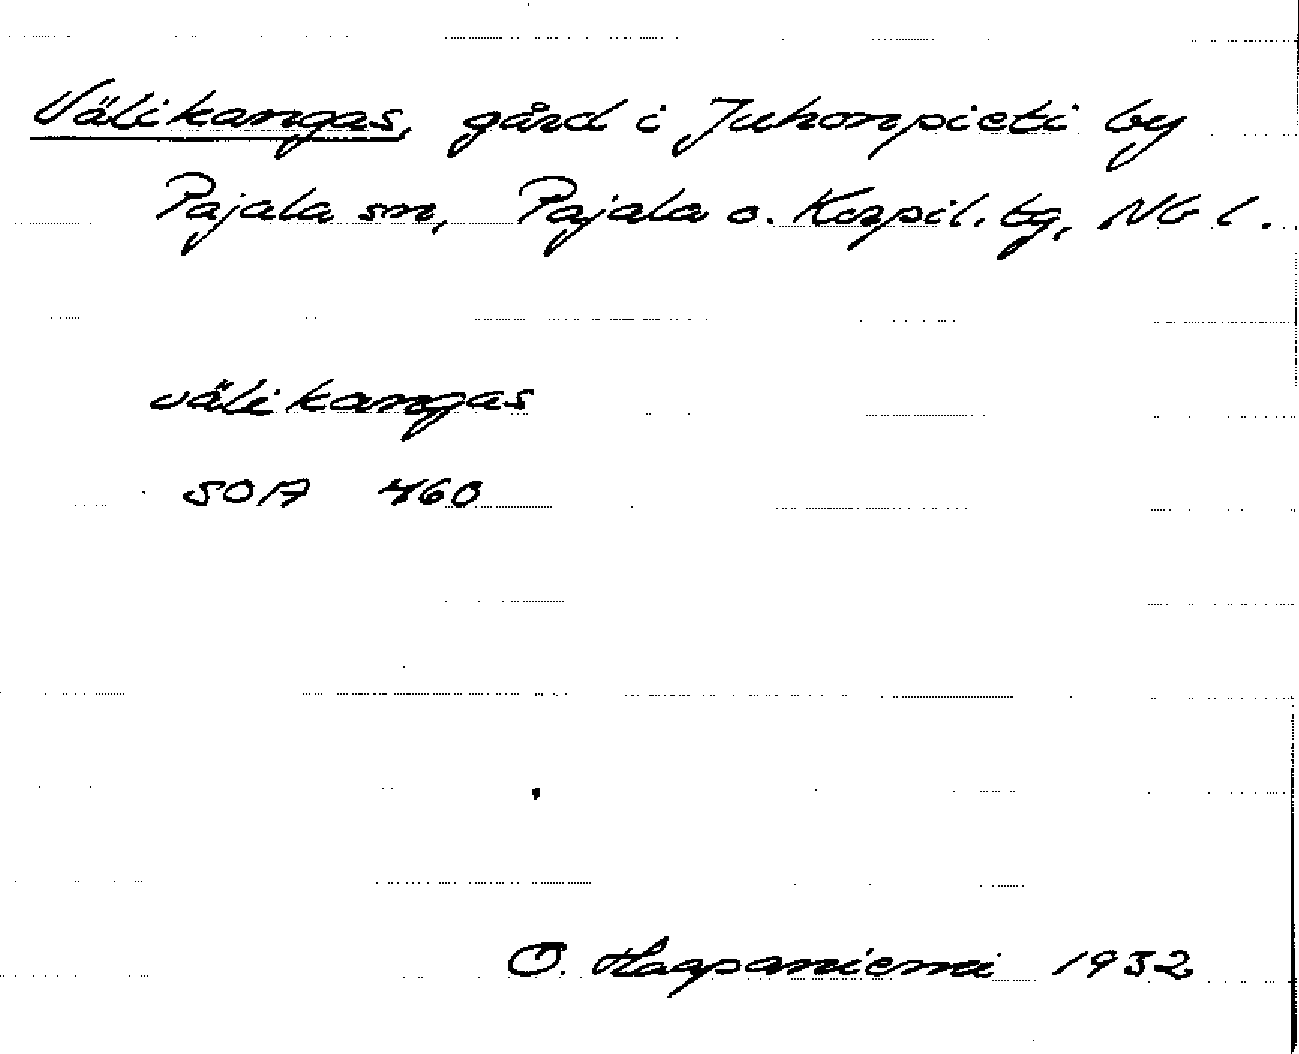 Välikangas, gård i Juhonpieti by
Pajala sn, Pajala o. Korpil. tg, Nb l.
väli kangas
SOA 460
O. Haapaniemi 1932